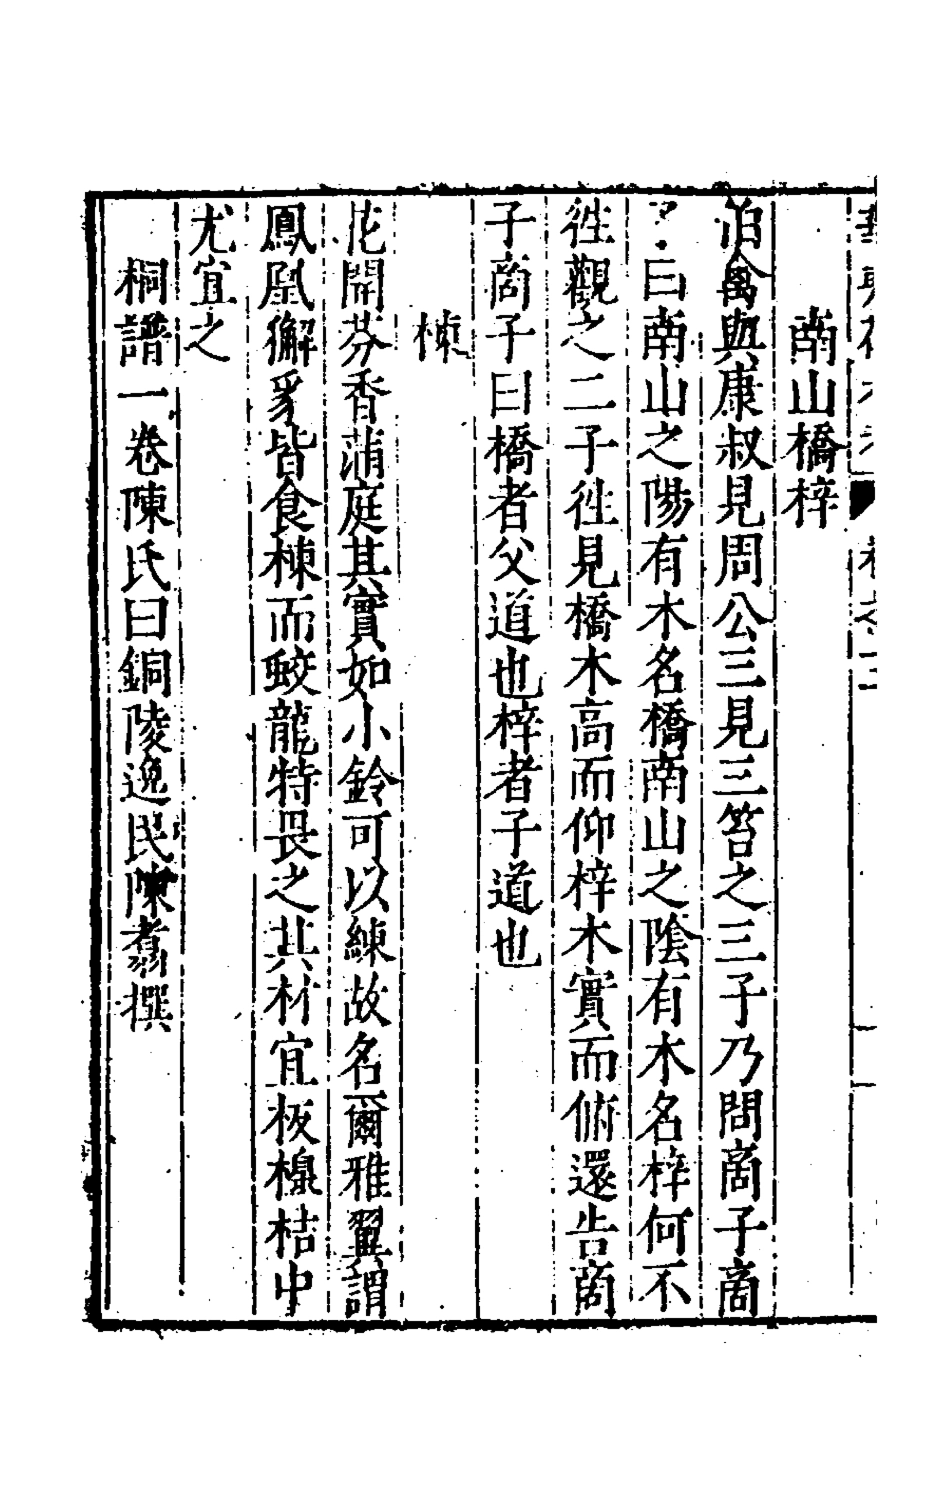 南山橋梓
伯禽與康叔見周公三見三笞之三子乃問商子商
子曰南山之陽有木名橋南山之陰有木名梓何不
徃觀之二子徃見橋木高而仰梓木實而俯還告商
子商子曰橋者父道也梓者子道也
楝
花開芬香蒲庭其實如小鈴可以練故名爾雅翼謂
鳳凰獬豸皆食楝而蛟龍特畏之其材宜板槨桔中
尤宜之
桐譜一卷陳氏曰銅陵逸民陳翥撰